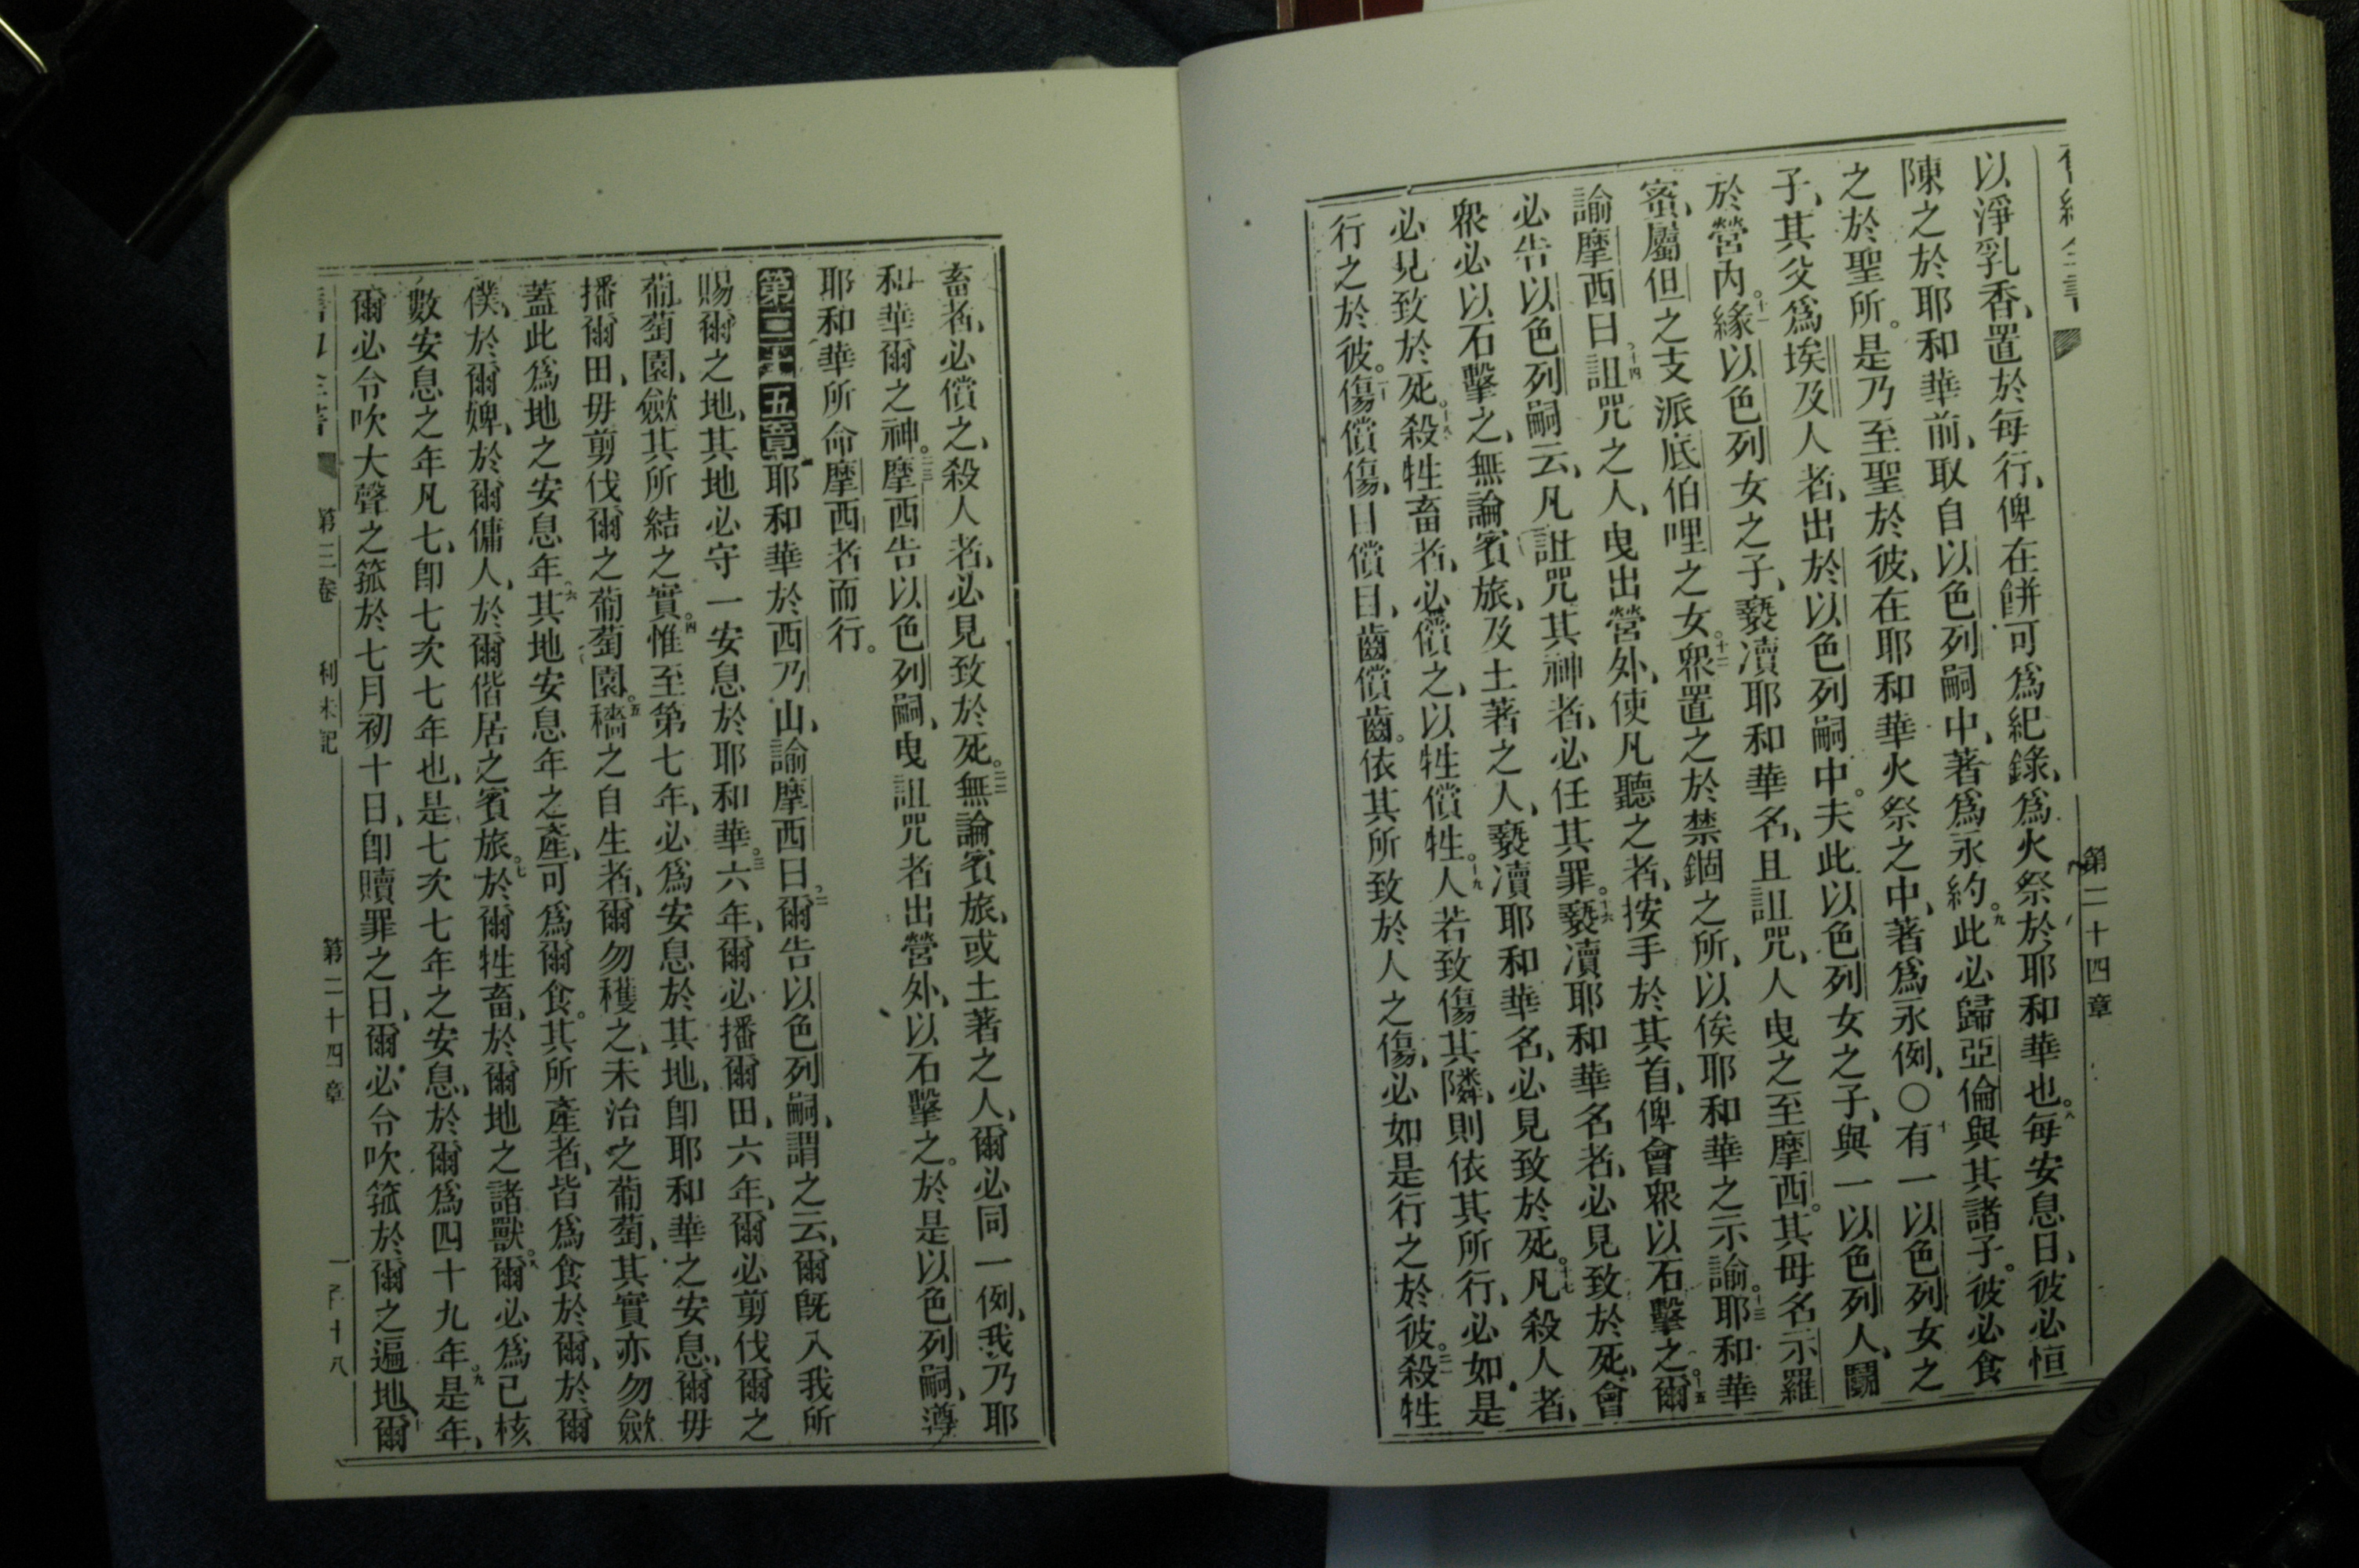 第二十四章
以淨乳香、置於每行、俾在餅可爲紀錄、爲火祭於耶和華也。八每安息日、彼必恒
陳之於耶和華前、取自以色列嗣中、著爲永約。九此必歸亞倫與其諸子。彼必食
之於聖所。是乃至聖於彼、在耶和華火祭之中、著爲永例、〇十有一以色列女之
子、其父爲埃及人者、出於以色列嗣中。夫此以色列女之子、與一以色列人、鬭
於營內。十一緣以色列女之子、褻瀆耶和華名、且詛咒、人曳之至摩西。其母名示羅
蜜、屬但之支派底伯哩之女。十二衆置之於禁錮之所、以俟耶和華之示諭。十三耶和華
諭摩西曰、十四詛咒之人、曳出營外、使凡聽之者、按手於其首、俾會衆以石擊之。十五爾
必告以色列嗣云、凡詛咒其神者、必任其罪。十六褻瀆耶和華名者、必見致於死、會
衆必以石擊之、無論賓旅、及土著之人、褻瀆耶和華名、必見致於死。十七凡殺人者、
必見致於死。十八殺牲畜者、必償之、以牲償牲。十九人若致傷其隣、則依其所行、必如是
行之於彼。二十傷償傷、目償目、齒償齒。依其所致於人之傷、必如是行之於彼。二一殺牲
畜者、必償之、殺人者、必見致於死。二二無論賓旅、或土著之人、爾必同一例、我乃耶
和華爾之神。二三摩西告以色列嗣、曳詛咒者出營外、以石擊之。於是以色列嗣、遵
耶和華所命摩西者而行。
第二十五章耶和華於西乃山、諭摩西曰、二爾告以色列嗣、謂之云、爾旣入我所
賜爾之地、其地必守一安息於耶和華。三六年、爾必播爾田、六年、爾必剪伐爾之
葡萄園、斂其所結之實。四惟至第七年、必爲安息於其地、卽耶和華之安息、爾毋
播爾田、毋剪伐爾之葡萄園。五穡之自生者、爾勿穫之、未治之葡萄、其實亦勿斂、
蓋此爲地之安息年。六其地安息年之產、可爲爾食。其所產者、皆爲食於爾、於爾
僕、於爾婢、於爾傭人、於爾偕居之賓旅。七於爾牲畜、於爾地之諸獸。八爾必爲己核
數安息之年凡七、卽七次七年也、是七次七年之安息、於爾爲四十九年。九是年、
爾必令吹大聲之箛於七月初十日、卽贖罪之日、爾必令吹箛於爾之遍地、十爾
第三卷 利未記 第二十四章